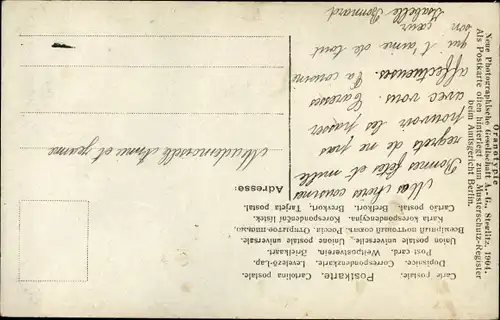 Carte postale. Cartolina postale.
Postkarte.
Dopisnice. Correspondenzkarte. Levelező-Lap.
Post card. Weltpostverein. Briefkaart.
Union postale universelle. Unione postale universale.
Всемірный почтовый союзъ. Россія. Открытое письмо.
Karta korespondencyjna. Korespondenční lístek.
Cartão postal. Brefkort. Brevkort. Tarjeta postal.
Adresse:
Mademoiselle Anna et Jeanne
Mes chères cousines
Bonnes fêtes et mille
regrets de ne pas
pouvoir les passer
avec vous. Caresses
affectueuses. Ta cousine
qui t'aime de tout
son cœur
Isabelle Bommard
Oranotypie
Neue Photographische Gesellschaft A.-G., Steglitz, 1904.
Als Postkarte offen hinterlegt zum Musterschutz-Register
beim Amtsgericht Berlin.